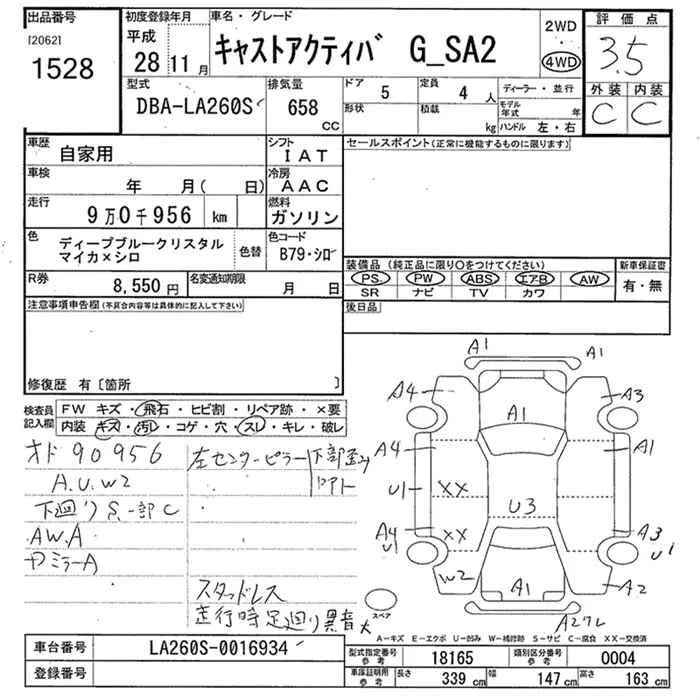 出品番号
[2062]
1528
初度登録年月
平成
28 11 月
車名・グレード
キャストアクティバ G_SA2
2WD
4WD
評価点
3.5
外装 内装
C C
型式
DBA-LA260S
排気量
658
CC
ドア 5
定員 4 人
形状
積載 kg
ディーラー・並行
モデル年式 年
ハンドル 左・右
車歴
自家用
シフト
IAT
車検
年 月( 日)
冷房
AAC
走行
9万0千956 km
燃料
ガソリン
色
ディープブルークリスタル
マイカ×シロ
色替
色コード
B79・シロ
R券
8,550 円
名変通知期限
月 日
セールスポイント(正常に機能するものに限ります)
装備品(純正品に限り○をつけてください)
PS PW ABS エアB AW
SR ナビ TV カワ
新車保証書
有・無
後日品
注意事項申告欄(不具合内容等は具体的に記入して下さい)
修復歴 有〔箇所 〕
検査員
記入欄
FW キズ・飛石・ヒビ割・リペア跡・×要
内装 キズ・汚レ・コゲ・穴・スレ・キレ・破レ
オド 90956
A.U.W2
下廻りS.一部C
AW.A
ドミラーA
左センターピラー下部歪み
スタッドレス
走行時足廻り異音大
A1
A1
A4
A3
A1
A4
A1
U1
XX
U3
A4
U1
XX
A3
U1
W2
A1
A2
A2ワレ
スペア
A−キズ E−エクボ U−凹み W−補修跡 S−サビ C−腐食 XX−交換済
車台番号
LA260S-0016934
登録番号
型式指定番号
参考
18165
類別区分番号
参考
0004
車庫証明用
参考
長さ 339 cm
幅 147 cm
高さ 163 cm